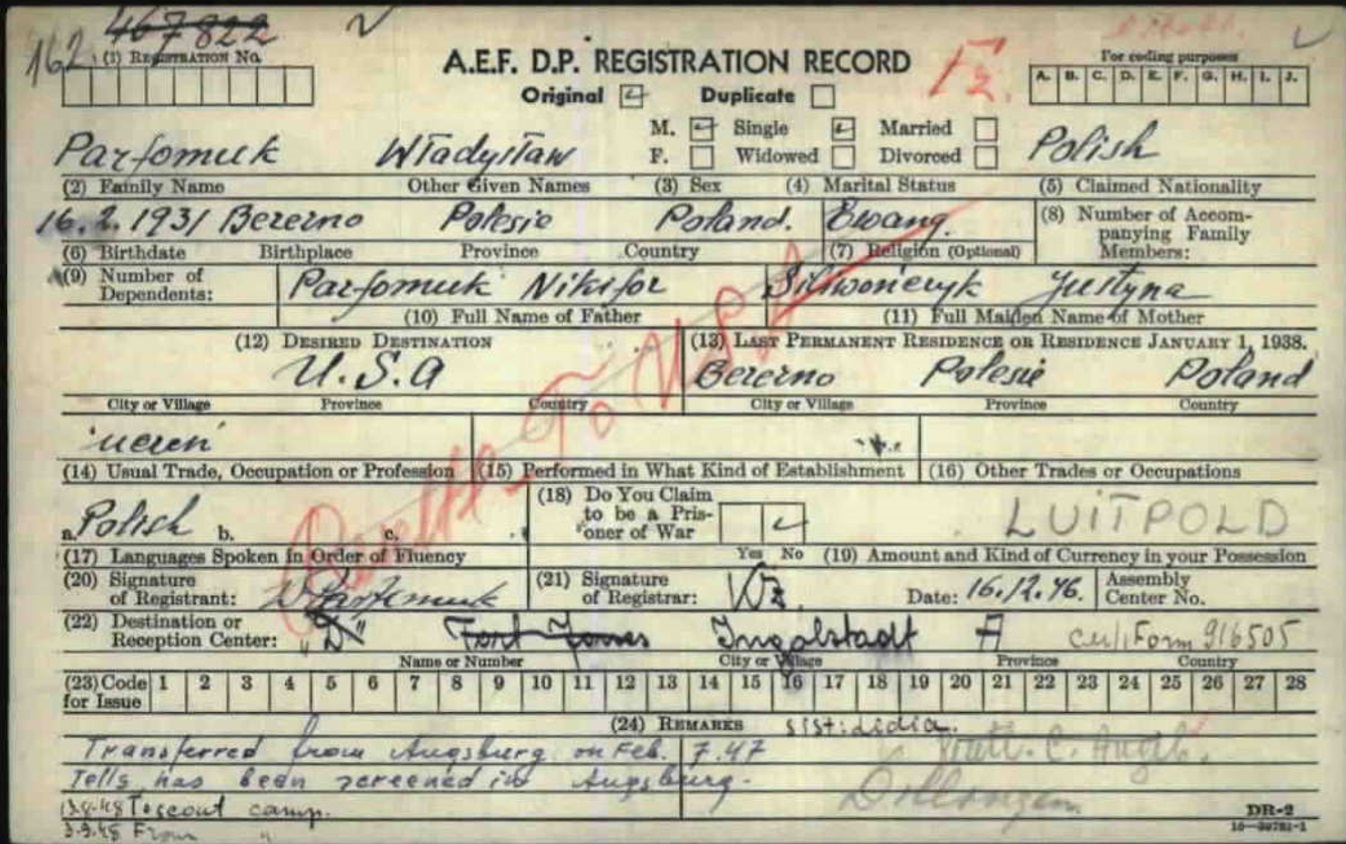 162 467822
(1) REGISTRATION NO.
A.E.F. D.P. REGISTRATION RECORD
For coding purposes
A. B. C. D. E. F. G. H. I. J.
Original Duplicate
M. Single Married
F. Widowed Divorced
Parfomuk Władysław Polish
(2) Family Name Other Given Names (3) Sex (4) Marital Status (5) Claimed Nationality
16.2.1931 Berezno Polesie Poland. Ewang.
(8) Number of Accompanying Family Members:
(6) Birthdate Birthplace Province Country (7) Religion (Optional)
(9) Number of Dependents:
Parfomuk Nikifor Justyna
(10) Full Name of Father (11) Full Maiden Name of Mother
(12) DESIRED DESTINATION (13) LAST PERMANENT RESIDENCE OR RESIDENCE JANUARY 1, 1938.
U.S.A Berezno Polesie Poland
City or Village Province Country City or Village Province Country
To USA
"uczen"
(14) Usual Trade, Occupation or Profession (15) Performed in What Kind of Establishment (16) Other Trades or Occupations
a. Polish b. c.
(18) Do You Claim to be a Prisoner of War
Yes No
LUITPOLD
(17) Languages Spoken in Order of Fluency (19) Amount and Kind of Currency in your Possession
(20) Signature of Registrant: WParfomuk
(21) Signature of Registrar: Date: 16.12.46. Assembly Center No.
(22) Destination or Reception Center: Ingolstadt A Form 916505
Name or Number City or Village Province Country
(23) Code for Issue 1 2 3 4 5 6 7 8 9 10 11 12 13 14 15 16 17 18 19 20 21 22 23 24 25 26 27 28
(24) REMARKS sist: Lidia.
Transferred from Augsburg on Feb. 7.47
Tells has been screened in Augsburg.
13.8.48 To scout camp.
3.9.48 From "
Dillingen
DR-2